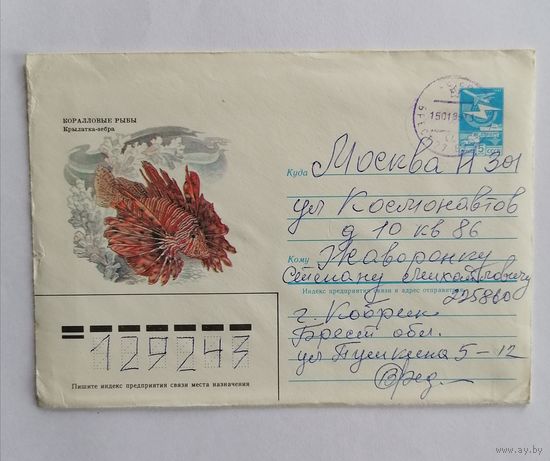 КОРАЛЛОВЫЕ РЫБЫ
Крылатка-зебра
5
150189
БРЕС
Куда Москва И 301
ул Космонавтов
д 10 кв 86
Кому Жаворонку
Степану Михайловичу
Индекс предприятия связи и адрес отправителя
225860
г. Кобрин
Брест обл.
ул Пушкина 5-12
129243
Пишите индекс предприятия связи места назначения
www.ay.by